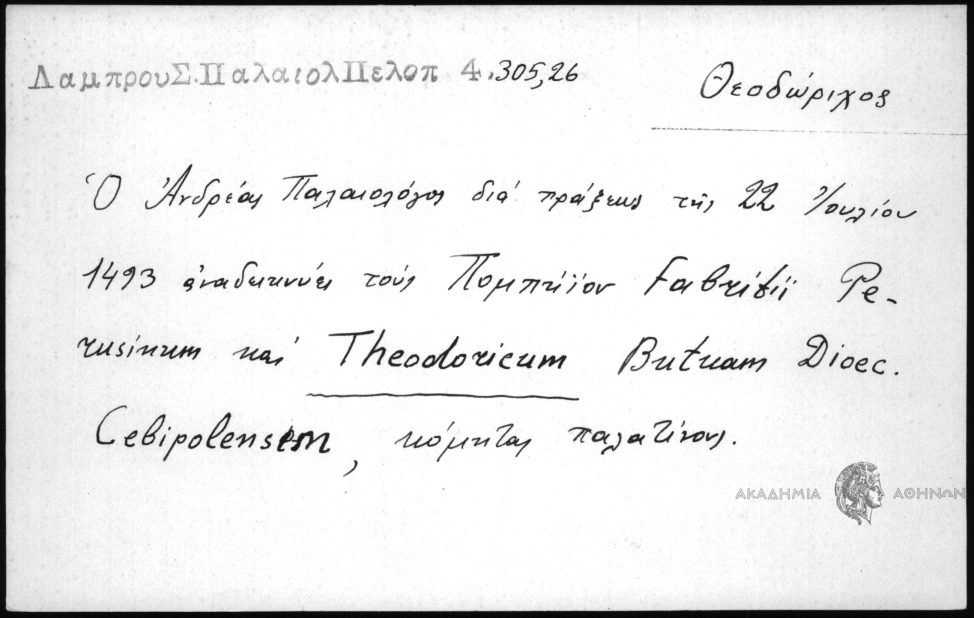 ΛαμπρουΣ.ΠαλαιολΠελοπ 4.305,26
Θεοδώριχος
Ὁ Ἀνδρέας Παλαιολόγος διά πράξεως τῆς 22 Ἰουλίου
1493 ἀναδεικνύει τούς Πομπήϊον Fabritii Pe-
rusinum καί Theodoricum Butuam Dioec.
Cebipolensem, κόμητας παλατίνους.
ΑΚΑΔΗΜΙΑ ΑΘΗΝΩΝ